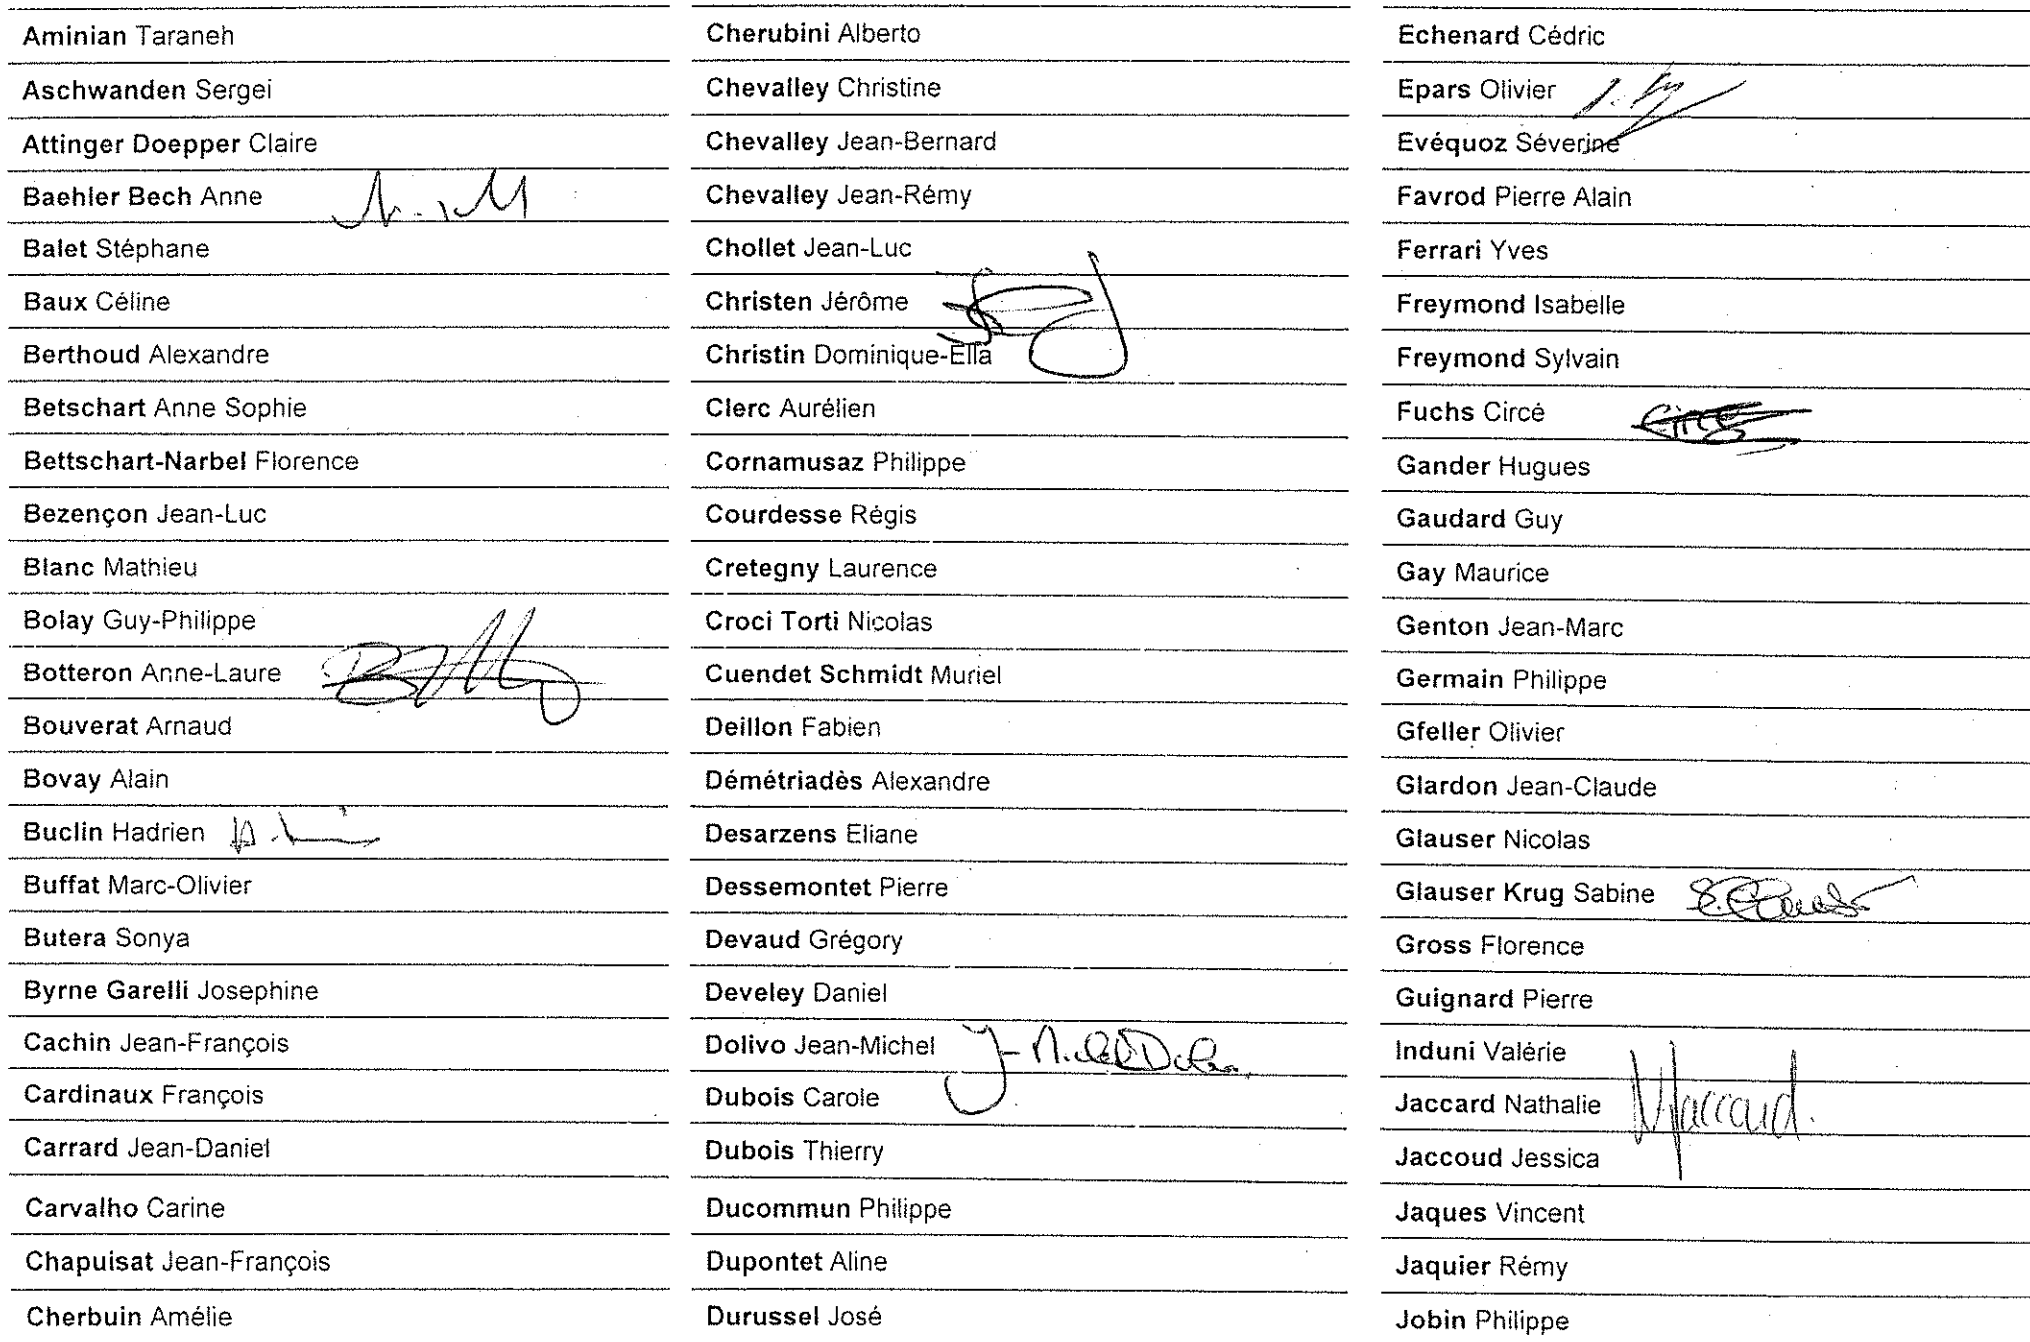 Aminian Taraneh
Aschwanden Sergei
Attinger Doepper Claire
Baehler Bech Anne
Balet Stéphane
Baux Céline
Berthoud Alexandre
Betschart Anne Sophie
Bettschart-Narbel Florence
Bezençon Jean-Luc
Blanc Mathieu
Bolay Guy-Philippe
Botteron Anne-Laure
Bouverat Arnaud
Bovay Alain
Buclin Hadrien
Buffat Marc-Olivier
Butera Sonya
Byrne Garelli Josephine
Cachin Jean-François
Cardinaux François
Carrard Jean-Daniel
Carvalho Carine
Chapuisat Jean-François
Cherbuin Amélie
Cherubini Alberto
Chevalley Christine
Chevalley Jean-Bernard
Chevalley Jean-Rémy
Chollet Jean-Luc
Christen Jérôme
Christin Dominique-Ella
Clerc Aurélien
Cornamusaz Philippe
Courdesse Régis
Cretegny Laurence
Croci Torti Nicolas
Cuendet Schmidt Muriel
Deillon Fabien
Démétriadès Alexandre
Desarzens Eliane
Dessemontet Pierre
Devaud Grégory
Develey Daniel
Dolivo Jean-Michel
Dubois Carole
Dubois Thierry
Ducommun Philippe
Dupontet Aline
Durussel José
Echenard Cédric
Epars Olivier
Evéquoz Séverine
Favrod Pierre Alain
Ferrari Yves
Freymond Isabelle
Freymond Sylvain
Fuchs Circé Circé
Gander Hugues
Gaudard Guy
Gay Maurice
Genton Jean-Marc
Germain Philippe
Gfeller Olivier
Glardon Jean-Claude
Glauser Nicolas
Glauser Krug Sabine
Gross Florence
Guignard Pierre
Induni Valérie
Jaccard Nathalie NJaccard.
Jaccoud Jessica
Jaques Vincent
Jaquier Rémy
Jobin Philippe